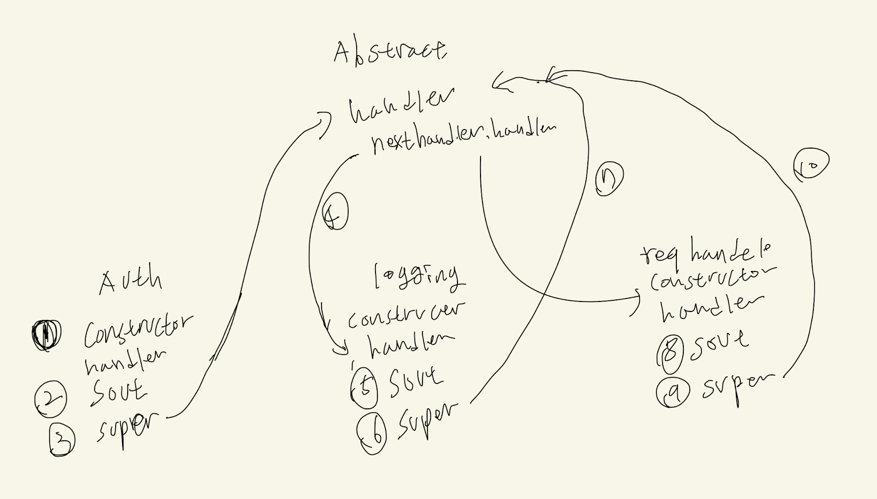 Abstract
handler
nexthandler.handler
4
n
10
Auth
1 constructor
handler
2 Sout
3 super
logging
construcer
handler
5 Sout
6 super
req handele
constructor
handler
8 sout
9 super